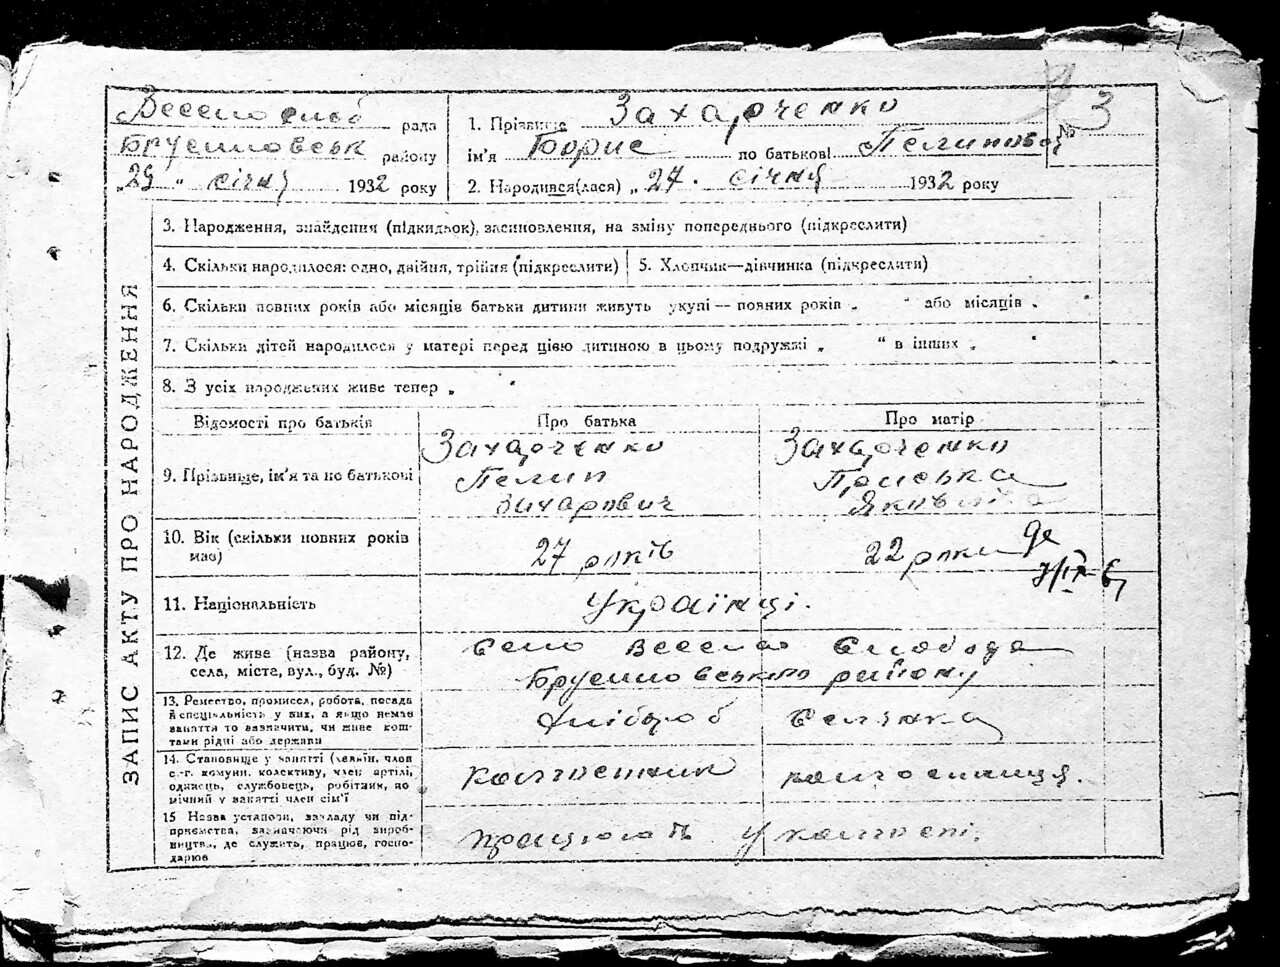 Весело слоб рада
Брусиловськ району
„29 " січня 1932 року
1. Прізвище Захарченко
ім'я Борис по батькові
2. Народився(лася) „ 27. січня 1932 року
№ 3
ЗАПИС АКТУ ПРО НАРОДЖЕННЯ
3. Народження, знайдення (підкидьок), засиновлення, на зміну попереднього (підкреслити)
4. Скільки народилося: одно, двійня, трійня (підкреслити)
5. Хлопчик—дівчинка (підкреслити)
6. Скільки повних років або місяців батьки дитини живуть укупі — повних років „ " або місяців „ "
7. Скільки дітей народилося у матері перед цією дитиною в цьому подружжі „ " в інших „ "
8. З усіх народжених живе тепер „ "
Відомості про батьків
Про батька
Про матір
9. Прізвище, ім'я та по батькові
Захарченко
Пелип
Захарович
Захарченко
Приська
Яківліва
10. Вік (скільки повних років
має)
27 років
22 роки
11. Національність
Українці.
12. Де живе (назва району,
села, міста, вул., буд. №)
Село Весела Слобода
Брусиловського району
13. Ремество, промисел, робота, посада
й спеціяльність у них, а якщо немає
заняття то зазначити, чи живе кош-
тами рідні або держави
Хлібороб
Селянка
14. Становище у занятті (хазяїн, член
с.-г. комуни, колективу, член артілі,
одинець, службовець, робітник, по
мічний у занятті член сім'ї
колгоспник
колгоспниця.
15 Назва установи, закладу чи під-
приємства, зазначаючи рід вироб-
ництва, де служить, працює, госпо-
дарює
працюють у колгоспі.